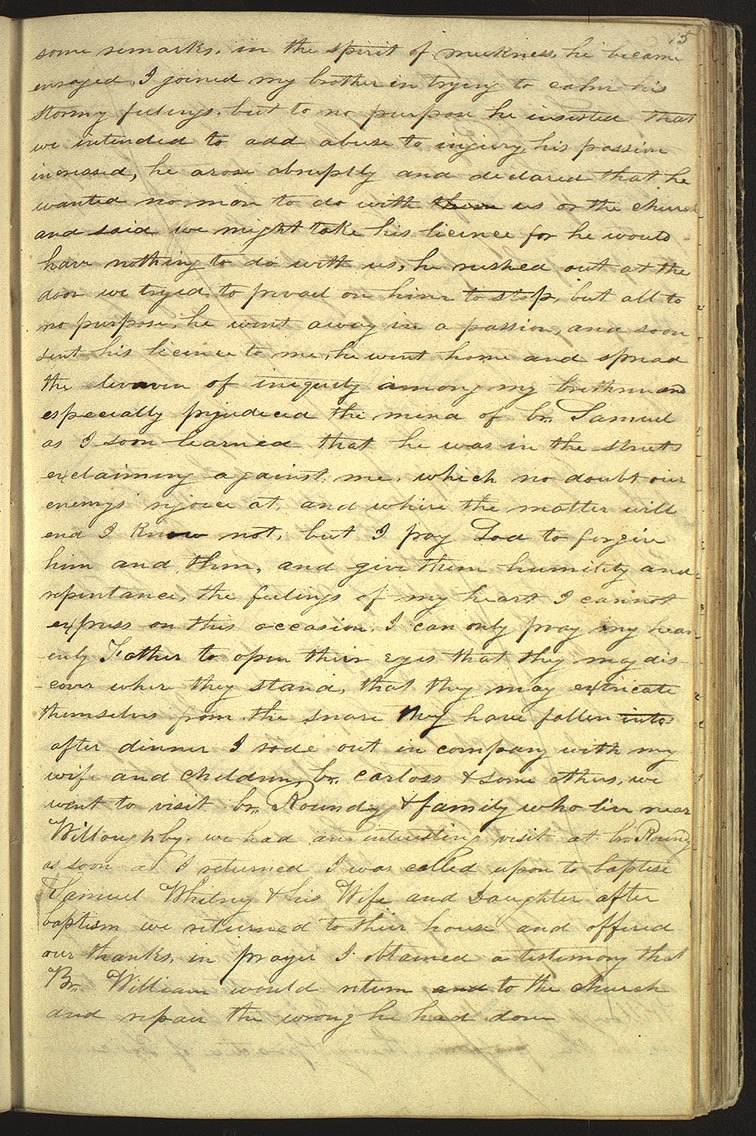 15
some remarks, in the spirit of meekness, he became
enraged, I joined my brother in trying to calm his
stormy feelings, but to no purpose he insisted that
we intended to add abuse to injury, his passion
increased, he arose abruptly and declared that he
wanted no more to do with them us or the church
and said we might take his licence for he would
have nothing to do with us, he rushed out at the
door we tryed to prevail on him to stop, but all to
no purpose, he went away in a passion, and soon
sent his licence to me, he went home and spread
the leaven of iniquity among my brethren and
especially prejudiced the mind of br. Samuel
as I soon learned that he was in the streets
exclaiming against me, which no doubt our
enemys rejoice at, and where the matter will
end I know not, but I pray God to forgive
him and them, and give them humility and
repentance, the feelings of my heart I cannot
express on this occasion, I can only pray my heav-
enly Father to open their eyes that they may dis-
cover where they stand, that they may extricate
themselves from the snare they have fallen into
after dinner I rode out in company with my
wife and children, br. carloss & some others, we
went to visit br. Roundy & family who live near
Willoughby, we had an interesting visit at br. Roundy
as soon as I returned I was called upon to baptise
Samuel Whitney & his Wife and Daughter after
baptism we returned to their house and offered
our thanks, in prayer I obtained a testimony that
Br. William would return and to the church
and repair the wrong he had done